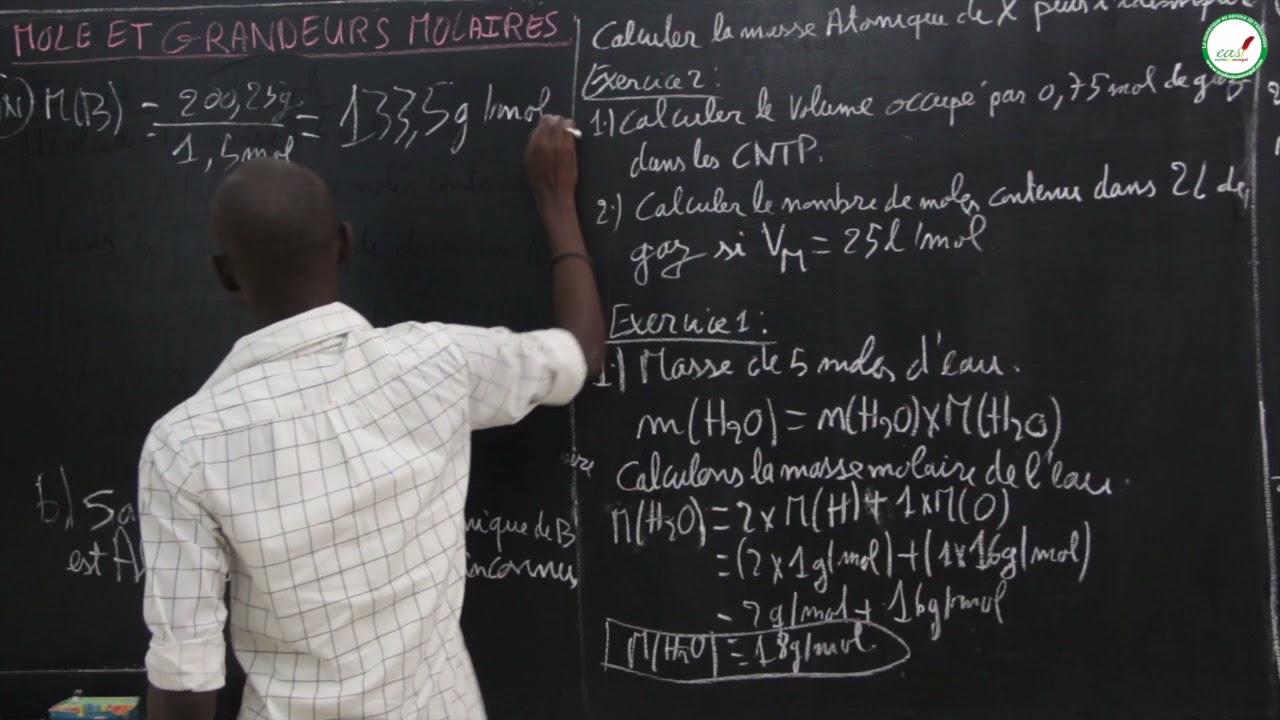 MOLE ET GRANDEURS MOLAIRES
N) M(B) = 200,25g / 1,5mol = 133,5g/mol
b) Sa
nique de B
est Al
inconnus
Calculer la masse Atomique de X
Exercice 2:
1.) Calculer le Volume occupé par 0,75 mol de gaz
dans les CNTP.
2.) Calculer le nombre de moles contenus dans 2l de
gaz si VM = 25l/mol
Exercice 1:
1.) Masse de 5 moles d'eau.
m(H2O) = n(H2O) x M(H2O)
Calculons la masse molaire de l'eau.
M(H2O) = 2 x M(H) + 1 x M(O)
= (2 x 1g/mol) + (1 x 16g/mol)
= 2g/mol + 16g/mol
M(H2O) = 18g/mol.
easi